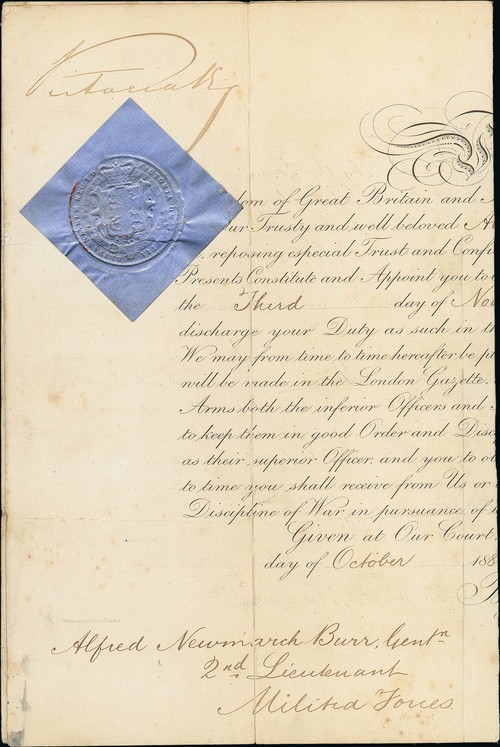 Victoria R
dom of Great Britain and
ur Trusty and well beloved
reposing especial Trust and Confi
Presents Constitute and Appoint you to
the Third day of No
discharge your Duty as such in th
We may from time to time hereafter be p
will be made in the London Gazette.
Arms both the inferior Officers and
to keep them in good Order and Disci
as their superior Officer, and you to o
to time you shall receive from Us or
Discipline of War in pursuance of
Given at Our Court
day of October 188
Alfred Newmarch Burr, Gentn
2nd Lieutenant
Militia Forces